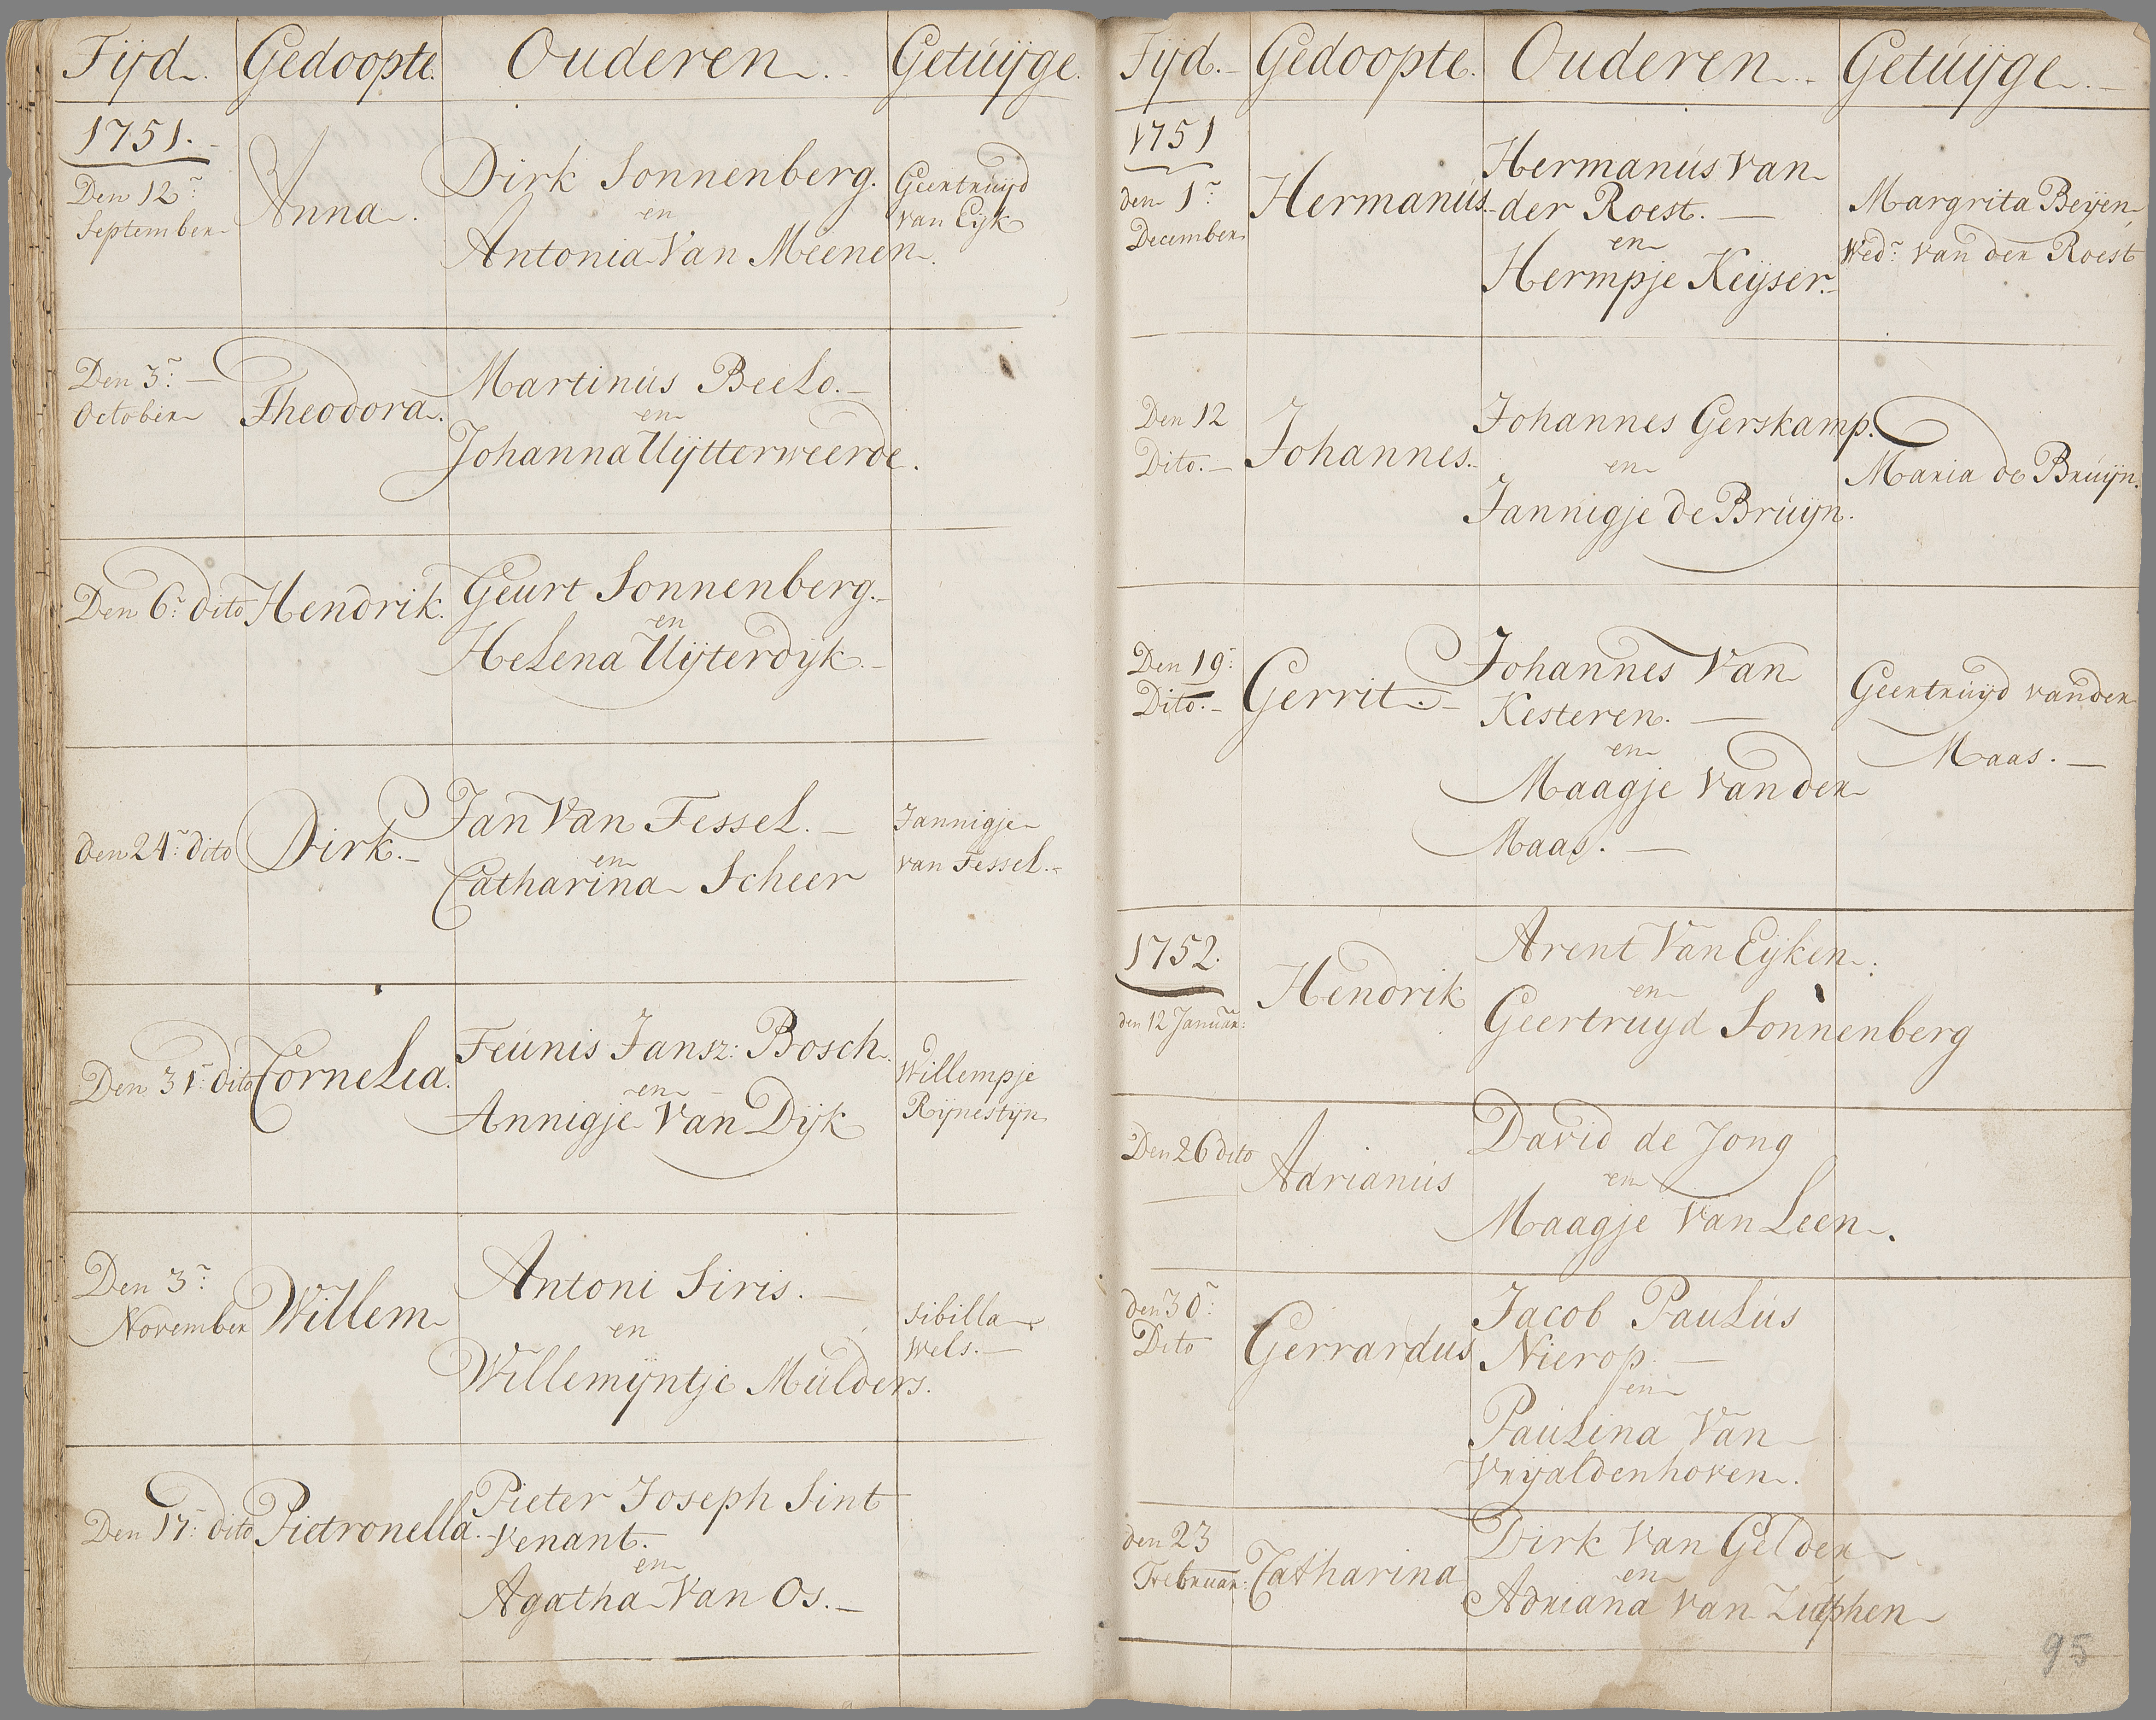 Tijd. Gedoopte. Ouderen. Getuijge.
1751.
Den 12r
September
Anna.
Dirk Sonnenberg.
en
Antonia Van Meenen.
Geertruijd
van Eijk
Den 3r:
October
Theodora.
Martinus Beelo.
en
Johanna Uijtterweerde.
Den 6r: dito
Hendrik.
Geurt Sonnenberg.
en
Helena Uijterdijk.
den 24r: dito
Dirk.
Jan Van Tessel.
en
Catharina Scheer
Jannigje
van Tessel.
Den 31r: dito
Cornelia.
Teunis Jansz: Bosch.
en
Annigje Van Dijk
Willempje
Rijnestijn
Den 3r:
November
Willem
Antoni Siris.
en
Willemijntje Mulders.
Sibilla
Wels.
Den 17r: dito
Pietronella.
Pieter Joseph Sint
Venant.
en
Agatha Van Os.
Tijd. Gedoopte. Ouderen. Getuijge.
1751
den 1r
December
Hermanus.
Hermanus Van
der Roest.
en
Hermpje Keijser.
Margrita Beijen,
Wedr: van der Roest
Den 12
Dito.
Johannes.
Johannes Gerskamp.
en
Jannigje de Bruijn.
Maria de Bruijn.
Den 19r:
Dito.
Gerrit.
Johannes Van
Kesteren.
en
Maagje Van der
Maas.
Geertruijd van der
Maas.
1752.
den 12 Januar:
Hendrik
Arent Van Eijken.
en
Geertruyd Sonnenberg
Den 26 dito
Adrianus
David de Jong
en
Maagje Van Leen.
den 30r:
Dito
Gerrardus
Jacob Paulus
Nierop.
en
Paulina Van
Vrijaldenhoven.
den 23
Februar:
Catharina
Dirk Van Gelder
en
Adriana van Zutphen
95